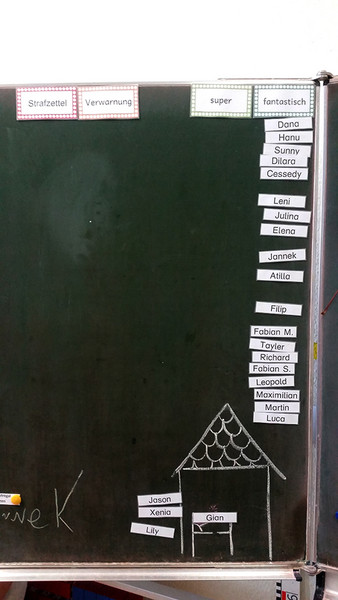 Strafzettel
Verwarnung
super
fantastisch
Dana
Hanu
Sunny
Dilara
Cessedy
Leni
Julina
Elena
Jannek
Atilla
Filip
Fabian M.
Tayler
Richard
Fabian S.
Leopold
Maximilian
Martin
Luca
Jason
Xenia
Lily
Gian